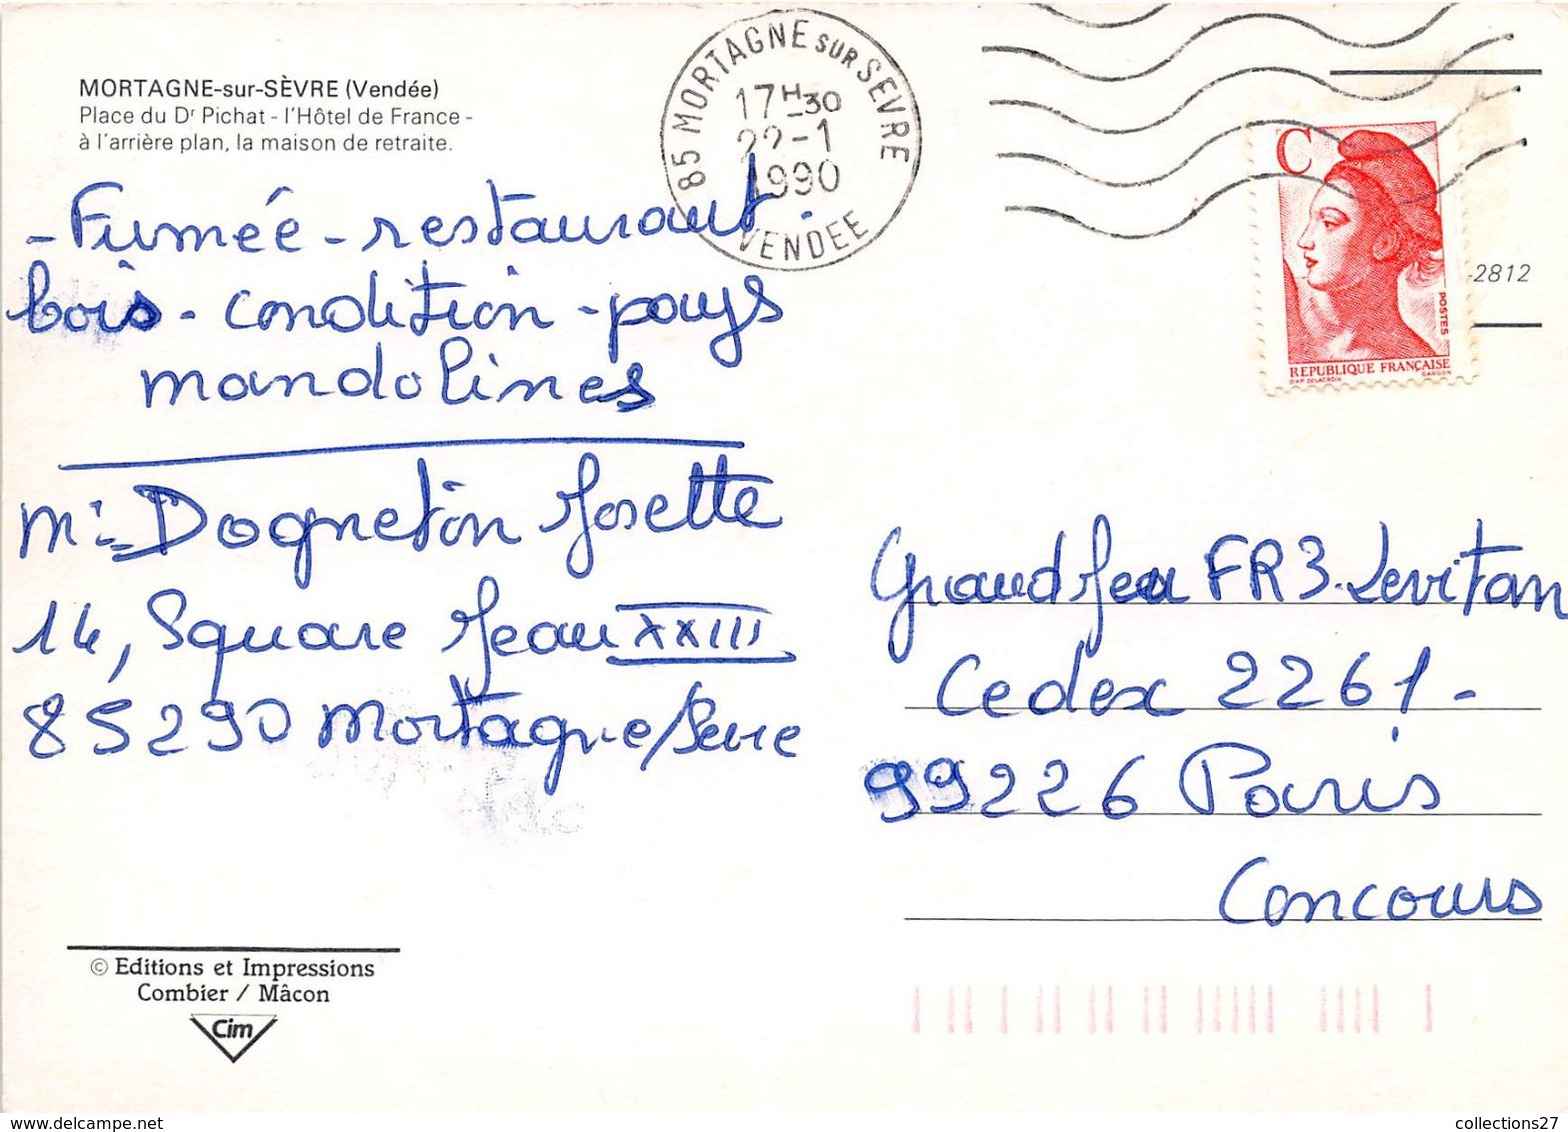 MORTAGNE-sur-SÈVRE (Vendée)
Place du Dr Pichat - l'Hôtel de France -
à l'arrière plan, la maison de retraite.
85 MORTAGNE SUR SEVRE
17H30
22-1
1990
VENDEE
C
POSTES
REPUBLIQUE FRANÇAISE
D'AP. DELACROIX GANDON
-2812
- Fumée - restaurant -
bois - condition - pays
mandolines
Dogneton Josette
14, Square Jean XXIII
85290 Mortagne/Sevre
Grand Jeu FR3-Levitan
Cedex 2261-
99226 Paris
Concours
© Editions et Impressions
Combier / Mâcon
Cim
collections27